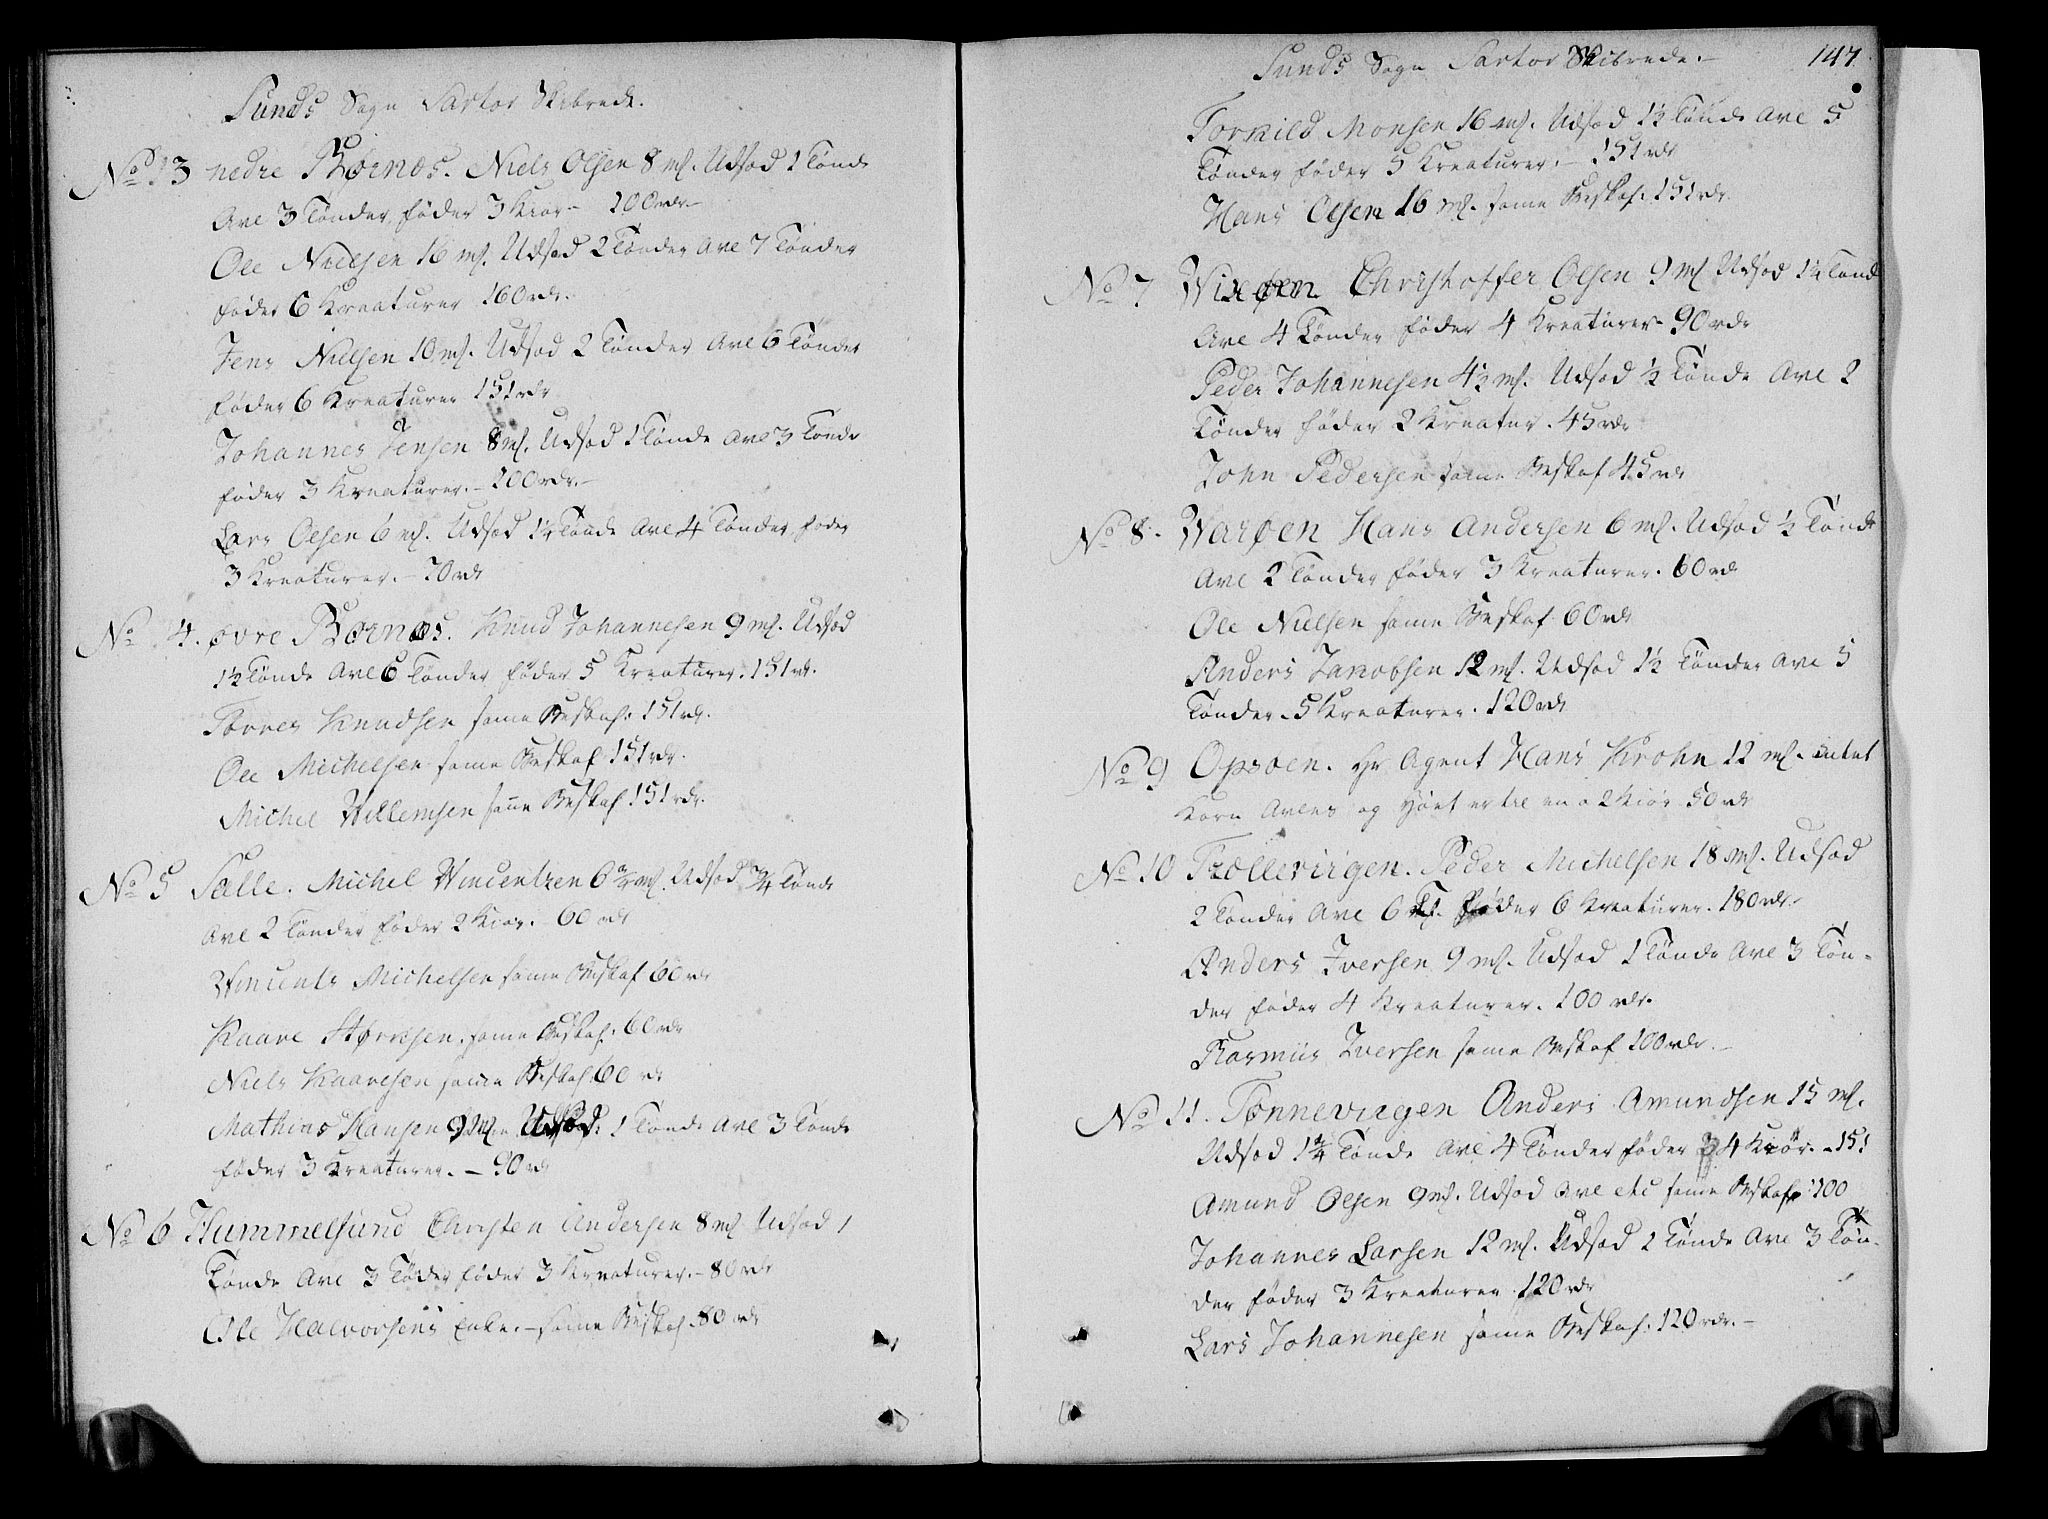 Sunds Sogn Sartor Skibrede.
No 13 nedre Børnæs. Niels Olsen 8 mf. Udsæd 1 Tønde
Avl 3 Tønder føder 3 Kiør - 100 rdr. -
Ole Nielsen 16 mf. Udsæd 2 Tønder Avl 7 Tønder
føder 6 Kreaturer 160 rdr.
Jens Nielsen 10 mf. Udsæd 2 Tønder Avl 6 Tønder
føder 6 Kreaturer 151 rdr
Johannes Jensen 8 mf. Udsæd 1 Tønde Avl 3 Tønde
føder 3 Kreaturer. - 100 rdr. -
Lars Olsen 6 mf. Udsæd 1¼ Tønde Avl 4 Tønder føder
3 Kreaturer. - 70 rdr
No 4. øvre Børnæs. Knud Johannesen 9 mf. Udsæd
1½ Tønde Avl 6 Tønder føder 5 Kreaturer. 151 rdr.
Torres Knudsen same Beskaf: 151 rdr.
Ole Michelsen same Beskaf 151 rdr.
Michel Willemsen same Beskaf 151 rdr.
No 5 Sælle. Michel Wincentzen 6¾ mf. Udsæd ¾ Tønde
Avl 2 Tønder føder 2 Kiør. 60 rdr
Wincents Michelsen same Beskaf 60 rdr
Kaare Størresen, same Beskaf: 60 rdr
Niels Kaaresen same Beskaf: 60 rdr
Mathias Hansen 9 Mf Udsæd: 1 Tønde Avl 3 Tønde
føder 3 Kreaturer. - 90 rdr
No 6 Hummelsund Christen Andersen 8 mf Udsæd 1
Tønde Avl 3 Tøder føder 3 Kreaturer. - 80 rdr
Ole Halvorsens Enke. - same Beskaf. 80 rdr
Sunds Sogn Sartor Skibrede. - 147
Torkild Monsen 16 mf. Udsæd 1½ Tønde Avl 5
Tønder føder 5 Kreaturer. - 151 rdr
Hans Olsen 16 mf. same Beskaf: 151 rdr.
No 7 Wixøen Christoffer Olsen 9 mf Udsæd 1¼ Tønde
Avl 4 Tønder føder 4 Kreaturer - 90 rdr
Peder Johannesen 4½ mf. Udsæd ½ Tønde Avl 2
Tønder føder 2 Kreatur. 45 rdr
John Pedersen same Beskaf 45 rdr
No 8. Warøen Hans Andersen 6 mf. Udsæd ½ Tønde
Avl 2 Tønder føder 3 Kreaturer. 60 rdr
Ole Nielsen same Beskaf 60 rdr
Anders Jacobsen 12 mf. Udsæd 1½ Tønder Avl 5
Tønder. 5 Kreaturer. 120 rdr
No 9 Opsøen. Hr Agent Hans Krohn 12 mf. intet
Korn Avles og Høet er til en a 2 Kiør 50 rdr
No 10 Trolleviigen. Peder Michelsen 18 mf. Udsæd
2 Tønder Avl 6 T. føder 6 Kreaturer. 180 rdr.
Anders Iversen 9 mf. Udsæd 1 Tønde Avl 3 Tøn-
der føder 4 Kreaturer. 100 rdr.
Rasmus Iversen same Beskaf 100 rdr. -
No 11. Tønnevigen Anders Amundsen 15 mf.
Udsæd 1¾ Tønde Avl 4 Tønder føder 4 Kiør. - 151
Amund Olsen 9 mf. Udsæd Avl etc same Beskaf: 100
Johannes Larsen 12 mf. Udsæd 1 Tønde Avl 3 Tøn-
der føder 3 Kreaturer 120 rdr
Lars Johannesen same Beskaf: 120 rdr. -